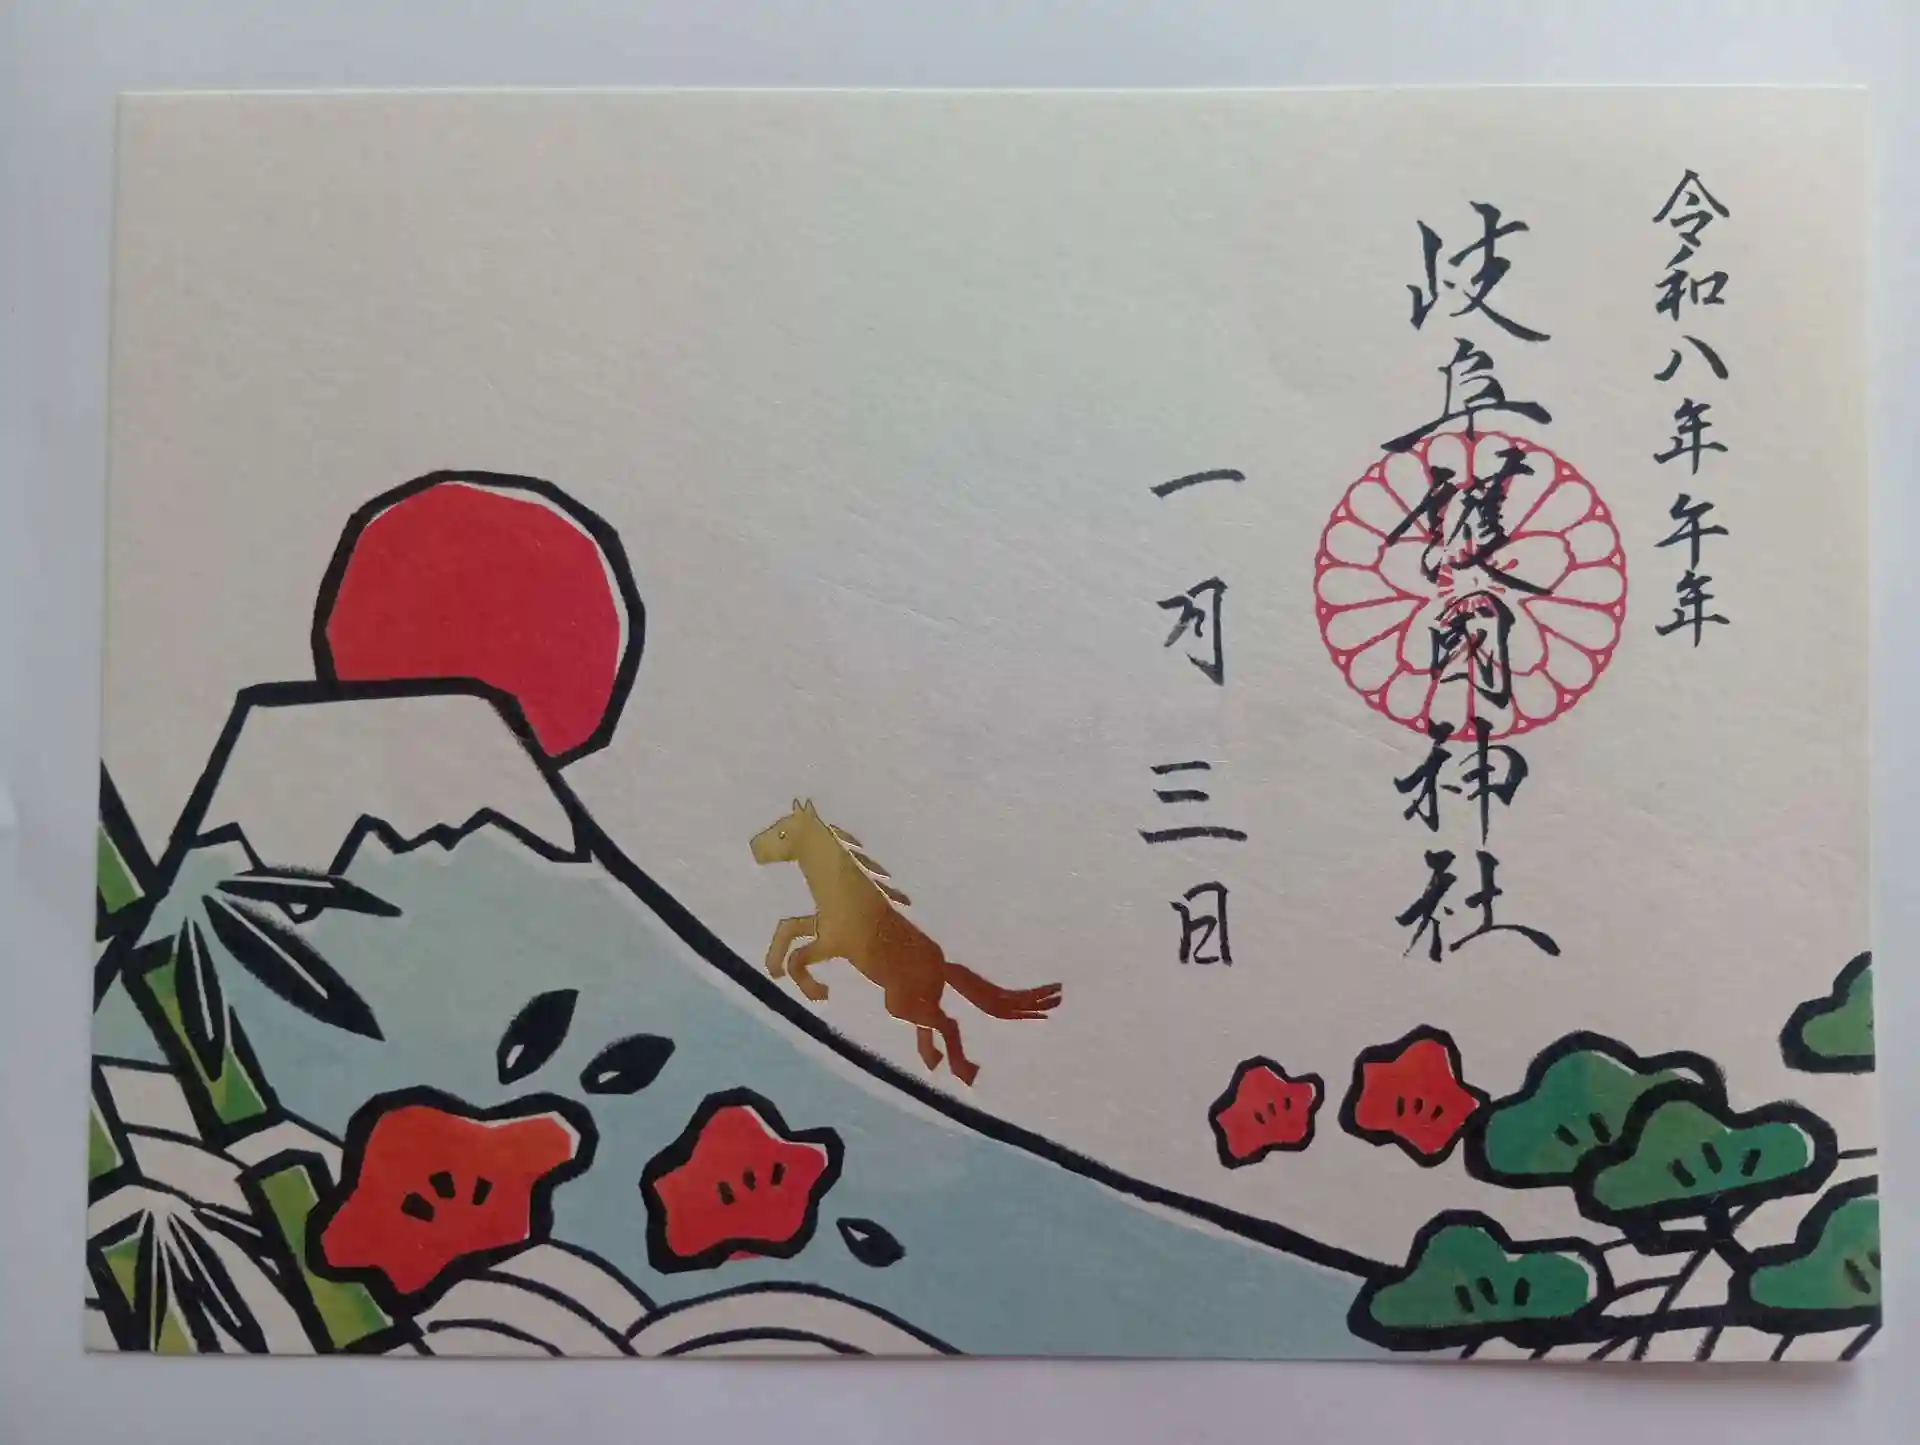 令和八年午年
岐阜護國神社
一月三日